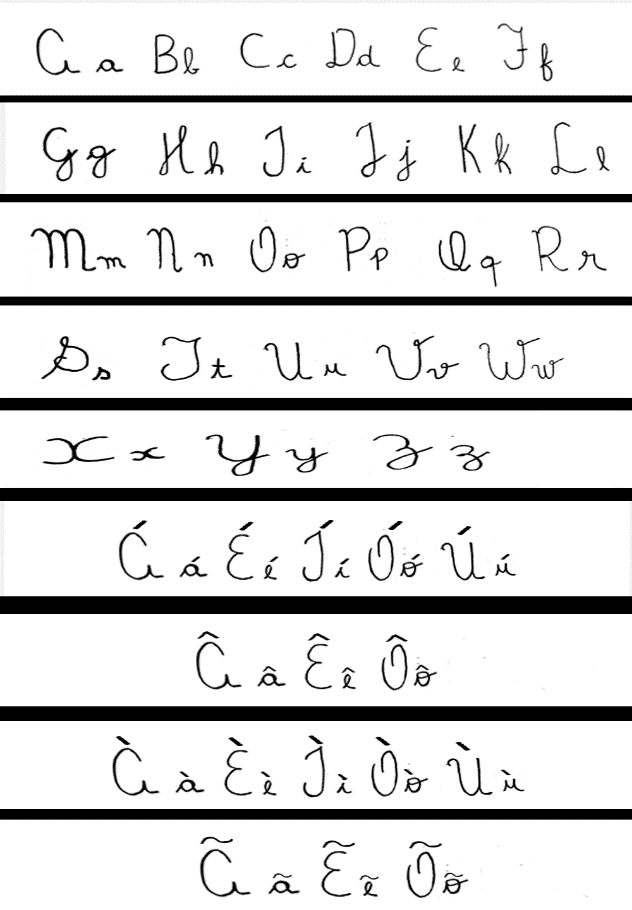 A a Bb Cc Dd Ee Ff
Gg Hh Ii Jj Kk Ll
Mm Nn Oo Pp Qq Rr
Ss Tt Uu Vv Ww
Xx Yy Zz
Á á Éé Íí Óó Úú
 â Êê Ôô
À à Èè Ìì Òò Ùù
à ã Ẽẽ Õõ